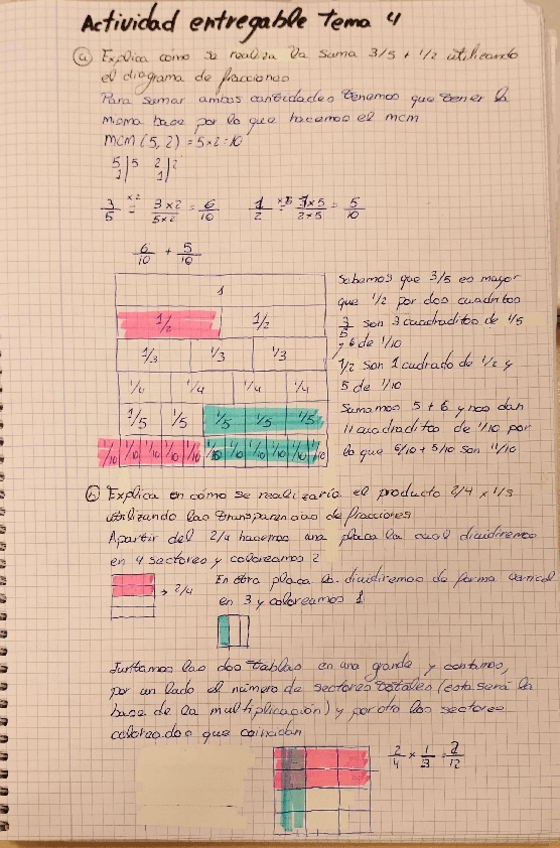 Actividad entregable Tema 4
a) Explica cómo se realiza la suma 3/5 + 1/2 utilizando
el diagrama de fracciones
Para sumar ambas cantidades tenemos que tener la
misma base por lo que hacemos el mcm
mcm (5, 2) = 5×2 = 10
5 | 5 2 | 2
1 | 1 |
3/5 ×2= 3×2/5×2 = 6/10 1/2 = 1×5/2×5 = 5/10
6/10 + 5/10
1
1/2 1/2
1/3 1/3 1/3
1/4 1/4 1/4 1/4
1/5 1/5 1/5 1/5 1/5
1/10 1/10 1/10 1/10 1/10 1/10 1/10 1/10 1/10 1/10 1/10
Sabemos que 3/5 es mayor
que 1/2 por dos cuadritos
3/5 son 3 cuadraditos de 1/5
y 6 de 1/10
1/2 son 1 cuadrado de 1/2 y
5 de 1/10
Sumamos 5 + 6 y nos dan
11 cuadraditos de 1/10 por
lo que 6/10 + 5/10 son 11/10
b) Explica en cómo se realizaría el producto 2/4 × 1/3
utilizando las transparencias de fracciones
A partir del 2/4 hacemos una placa la cual dividiremos
en 4 sectores y coloreamos 2
→ 2/4
En otra placa la dividiremos de forma vertical
en 3 y coloreamos 1
Juntamos las dos tablas en una grande y contamos,
por un lado el número de sectores totales (esta será la
base de la multiplicación) y por otro los sectores
coloreados que coincidan
2/4 × 1/3 = 2/12